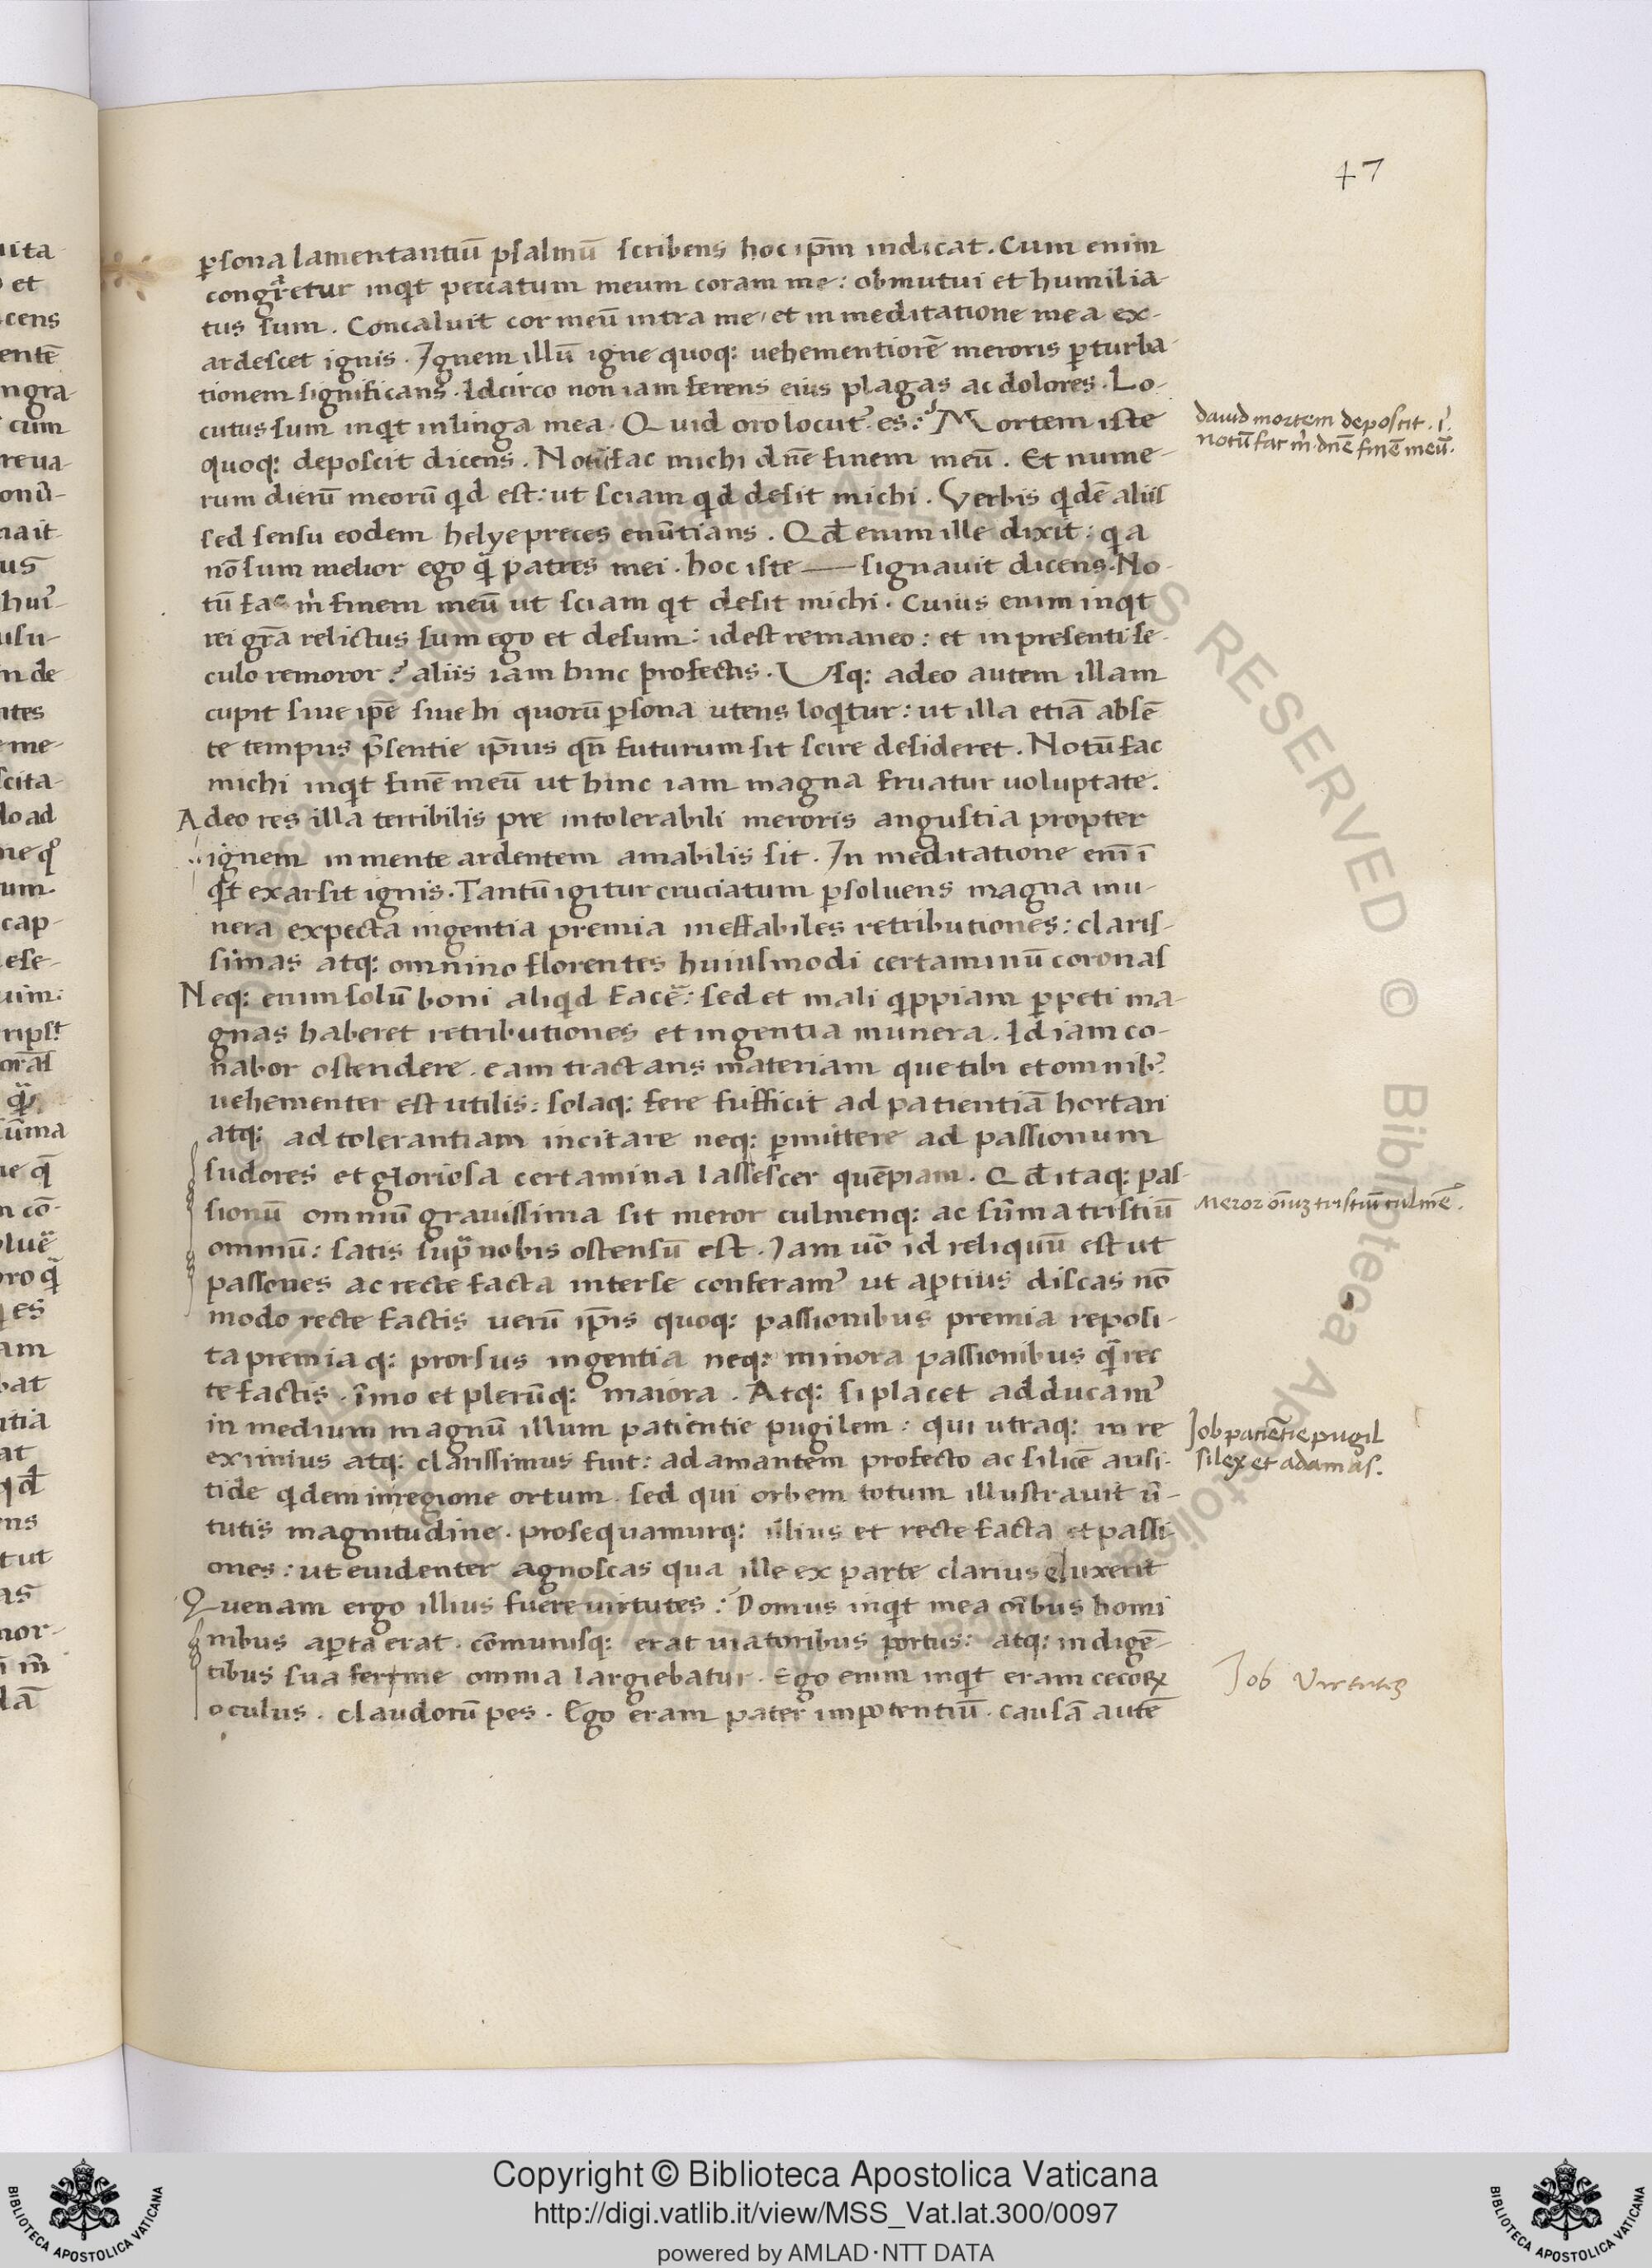 47
ꝑsona lamentantiū psalmū scribens hoc ip̄m indicat. Cum enim
congr̄etur inqͥt peccatum meum coram me: obmutui et humilia-
tus sum. Concaluit cor meū intra me, et in meditatione mea ex-
ardescet ignis. Ignem illū igne quoq: uehementiorē meroris ꝑturba-
tionem significans. Idcirco non iam ferens eius plagas ac dolores. Lo-
cutus sum inqͥt in linga mea. Quid oro locut᾿ es? Mortem iste
quoq: deposcit dicens. Notū fac michi dn̄e finem meū. Et nume-
rum dierū meorū qͥd est: ut sciam qͥd desit michi. Verbis qͥdē aliis
sed sensu eodem helye preces enūtians. Qd̄ enim ille dixit: qͥa
nō sum melior ego qᷓ patres mei. hoc iste — signauit dicens. No-
tū fac m̍ finem meū ut sciam qͥt desit michi. Cuius enim inqͥt
rei gr̄a relictus sum ego et desum: idest remaneo: et in presenti se-
culo remoror? aliis iam hinc profectis. Usq: adeo autem illam
cupit siue ip̄e siue hi quorū ꝑsona utens loqͥtur: ut illa etiā absē
te tempus p̄sentie ip̄ius qn̄ futurum sit scire desideret. Notū fac
michi inqͥt finē meū ut hinc iam magna fruatur uoluptate.
Adeo res illa terribilis pre intolerabili meroris angustia propter
ignem in mente ardentem amabilis sit. In meditatione enī ī
qͥt exarsit ignis. Tantū igitur cruciatum ꝑsoluens magna mu-
nera expecta ingentia premia ineffabiles retributiones: claris-
simas atq: omnino florentes huiusmodi certaminū coronas
Neq: enim solū boni aliqͥd facē: sed et mali qͥppiam ꝑpeti ma-
gnas haberet retributiones et ingentia munera. Id iam co-
nabor ostendere. eam tractans materiam que tibi et omnib᾿
uehementer est utilis: solaq: fere sufficit ad patientiā hortari
atq: ad tolerantiam incitare neq: ꝑmittere ad passionum
sudores et gloriosa certamina lassescer quēpiam. Qd̄ itaq: pas-
sionū omniū grauissima sit meror culmenq: ac sūma tristiū
omniū: satis supᷓ nobis ostensū est. Iam uō id reliquū est ut
passones ac recte facta inter se conferam᾿ ut aptius discas nō
modo recte factis uerū ip̄is quoq: passionibus premia reposi-
ta premia q: prorsus ingentia neq: minora passionibus qᷓ rec
te factis. īmo et plerūq: maiora. Atq: si placet adducam᾿
in medium magnū illum patientie pugilem: qui utraq: in re
eximius atq: clarissimus fuit: adamantem profecto ac silicē ausi-
tide qͥdem in regione ortum. sed qui orbem totum illustrauit ū-
tutis magnitudine. prosequamurq: illius et recte facta et passi-
ones: ut euidenter agnoscas qua ille ex parte clarius eluxerit
Quenam ergo illius fuere uirtutes? Domus inqͥt mea oībus homi
nibus aꝑta erat. cōmunisq: erat uiatoribus portus: atq: indigē-
tibus sua ferme omnia largiebatur. Ego enim inqͥt eram cecoꝝ
oculus. claudorū pes. Ego eram pater impotentiū. causā autē
dauid mortem deposcit. i᾿.
notū fac m̍. dn̄e finē meū.
Meror oīuȝ tristiū culmē.
Job patiētie pugil
silex et adamas.
Job Virtutes
Copyright © Biblioteca Apostolica Vaticana
http://digi.vatlib.it/view/MSS_Vat.lat.300/0097
powered by AMLAD·NTT DATA
BIBLIOTECA APOSTOLICA VATICANA
BIBLIOTECA APOSTOLICA VATICANA